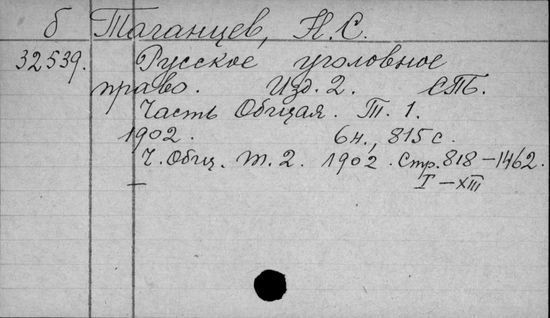 б Таганцев, Н. С.
32539. Русское уголовное
право. Изд. 2. СПб.
Часть Общая. Т. 1.
1902. 6н., 815 с.
Ч. Общ. т. 2. 1902. Стр. 818-1462.
I-XIII